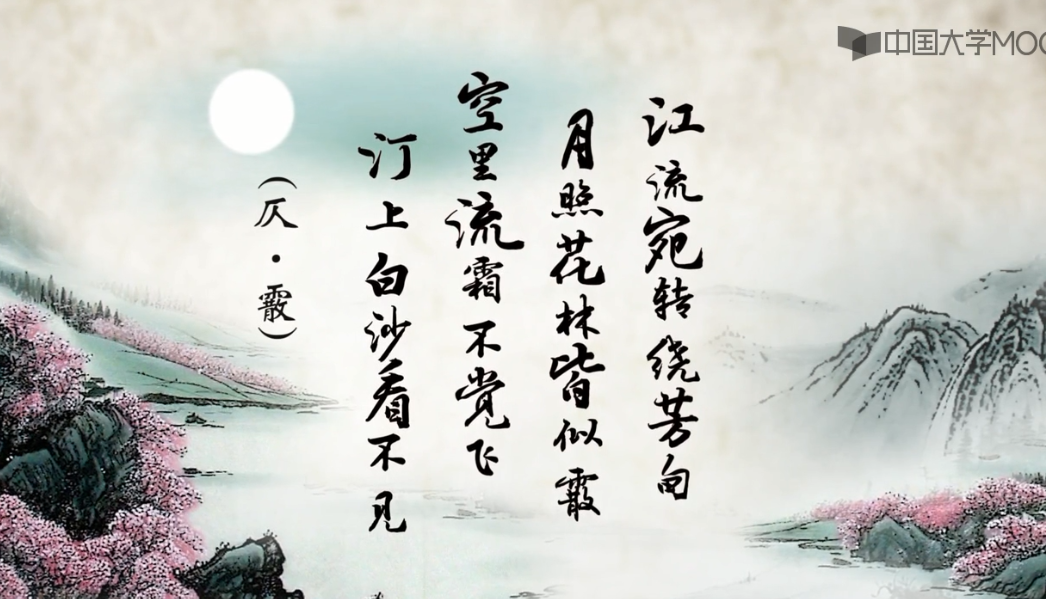 中国大学MOOC
江流宛转绕芳甸
月照花林皆似霰
空里流霜不觉飞
汀上白沙看不见
（仄·霰）